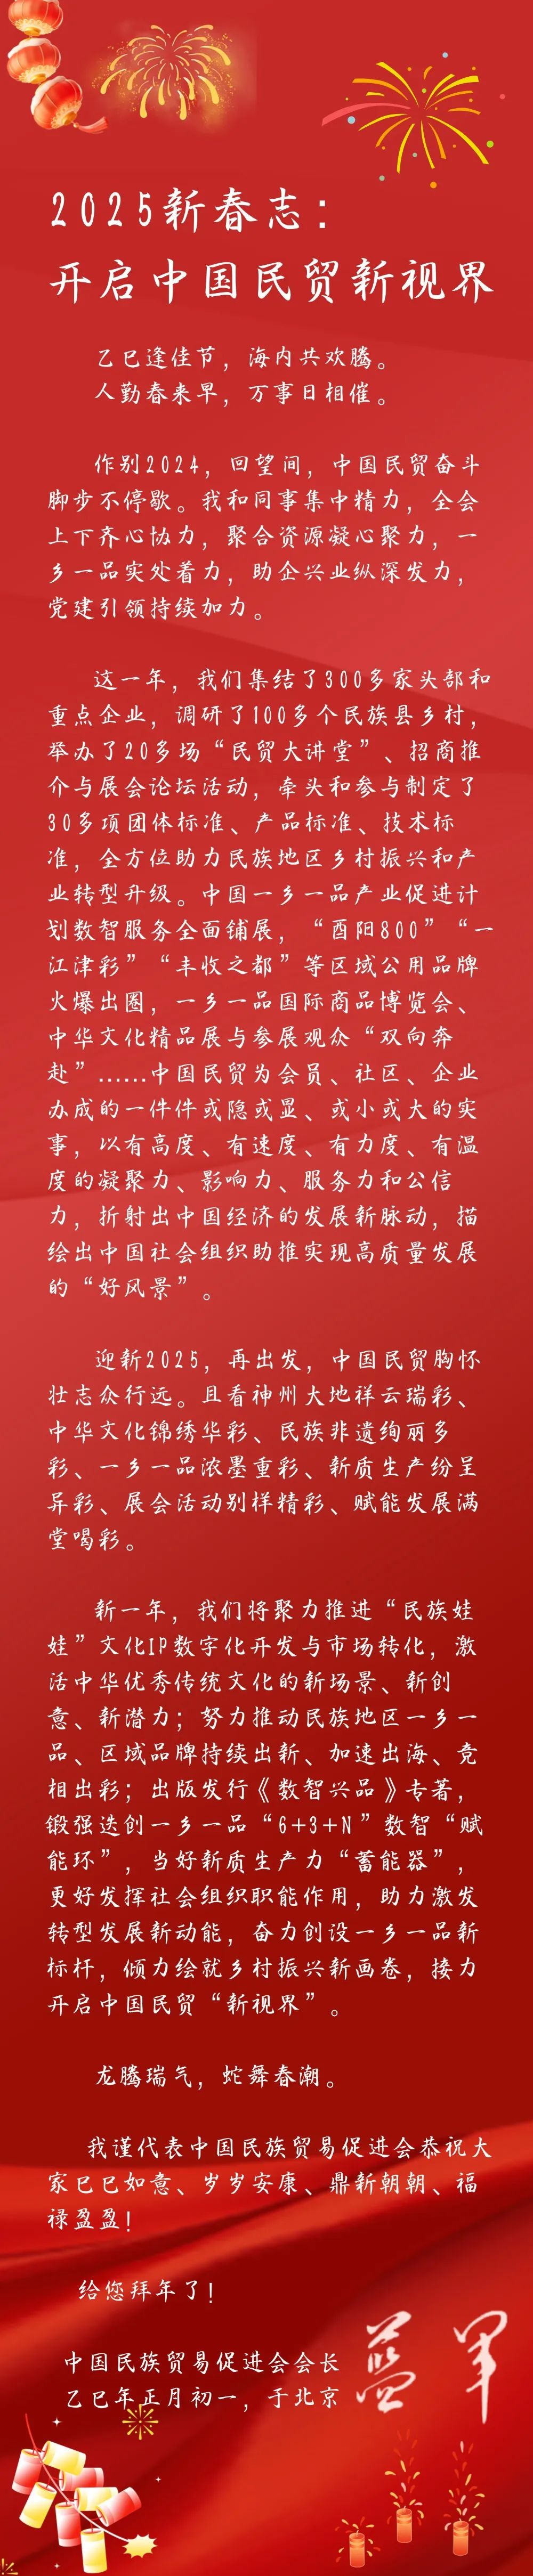 2025新春志：
开启中国民贸新视界
乙巳逢佳节，海内共欢腾。
人勤春来早，万事日相催。
作别2024，回望间，中国民贸奋斗
脚步不停歇。我和同事集中精力，全会
上下齐心协力，聚合资源凝心聚力，一
乡一品实处着力，助企兴业纵深发力，
党建引领持续加力。
这一年，我们集结了300多家头部和
重点企业，调研了100多个民族县乡村，
举办了20多场“民贸大讲堂”、招商推
介与展会论坛活动，牵头和参与制定了
30多项团体标准、产品标准、技术标
准，全方位助力民族地区乡村振兴和产
业转型升级。中国一乡一品产业促进计
划数智服务全面铺展，“酉阳800”“一
江津彩”“丰收之都”等区域公用品牌
火爆出圈，一乡一品国际商品博览会、
中华文化精品展与参展观众“双向奔
赴”……中国民贸为会员、社区、企业
办成的一件件或隐或显、或小或大的实
事，以有高度、有速度、有力度、有温
度的凝聚力、影响力、服务力和公信
力，折射出中国经济的发展新脉动，描
绘出中国社会组织助推实现高质量发展
的“好风景”。
迎新2025，再出发，中国民贸胸怀
壮志众行远。且看神州大地祥云瑞彩、
中华文化锦绣华彩、民族非遗绚丽多
彩、一乡一品浓墨重彩、新质生产纷呈
异彩、展会活动别样精彩、赋能发展满
堂喝彩。
新一年，我们将聚力推进“民族娃
娃”文化IP数字化开发与市场转化，激
活中华优秀传统文化的新场景、新创
意、新潜力；努力推动民族地区一乡一
品、区域品牌持续出新、加速出海、竞
相出彩；出版发行《数智兴品》专著，
锻强迭创一乡一品“6+3+N”数智“赋
能环”，当好新质生产力“蓄能器”，
更好发挥社会组织职能作用，助力激发
转型发展新动能，奋力创设一乡一品新
标杆，倾力绘就乡村振兴新画卷，接力
开启中国民贸“新视界”。
龙腾瑞气，蛇舞春潮。
我谨代表中国民族贸易促进会恭祝大
家巳巳如意、岁岁安康、鼎新朝朝、福
禄盈盈！
给您拜年了！
中国民族贸易促进会会长
乙巳年正月初一，于北京
蓝军